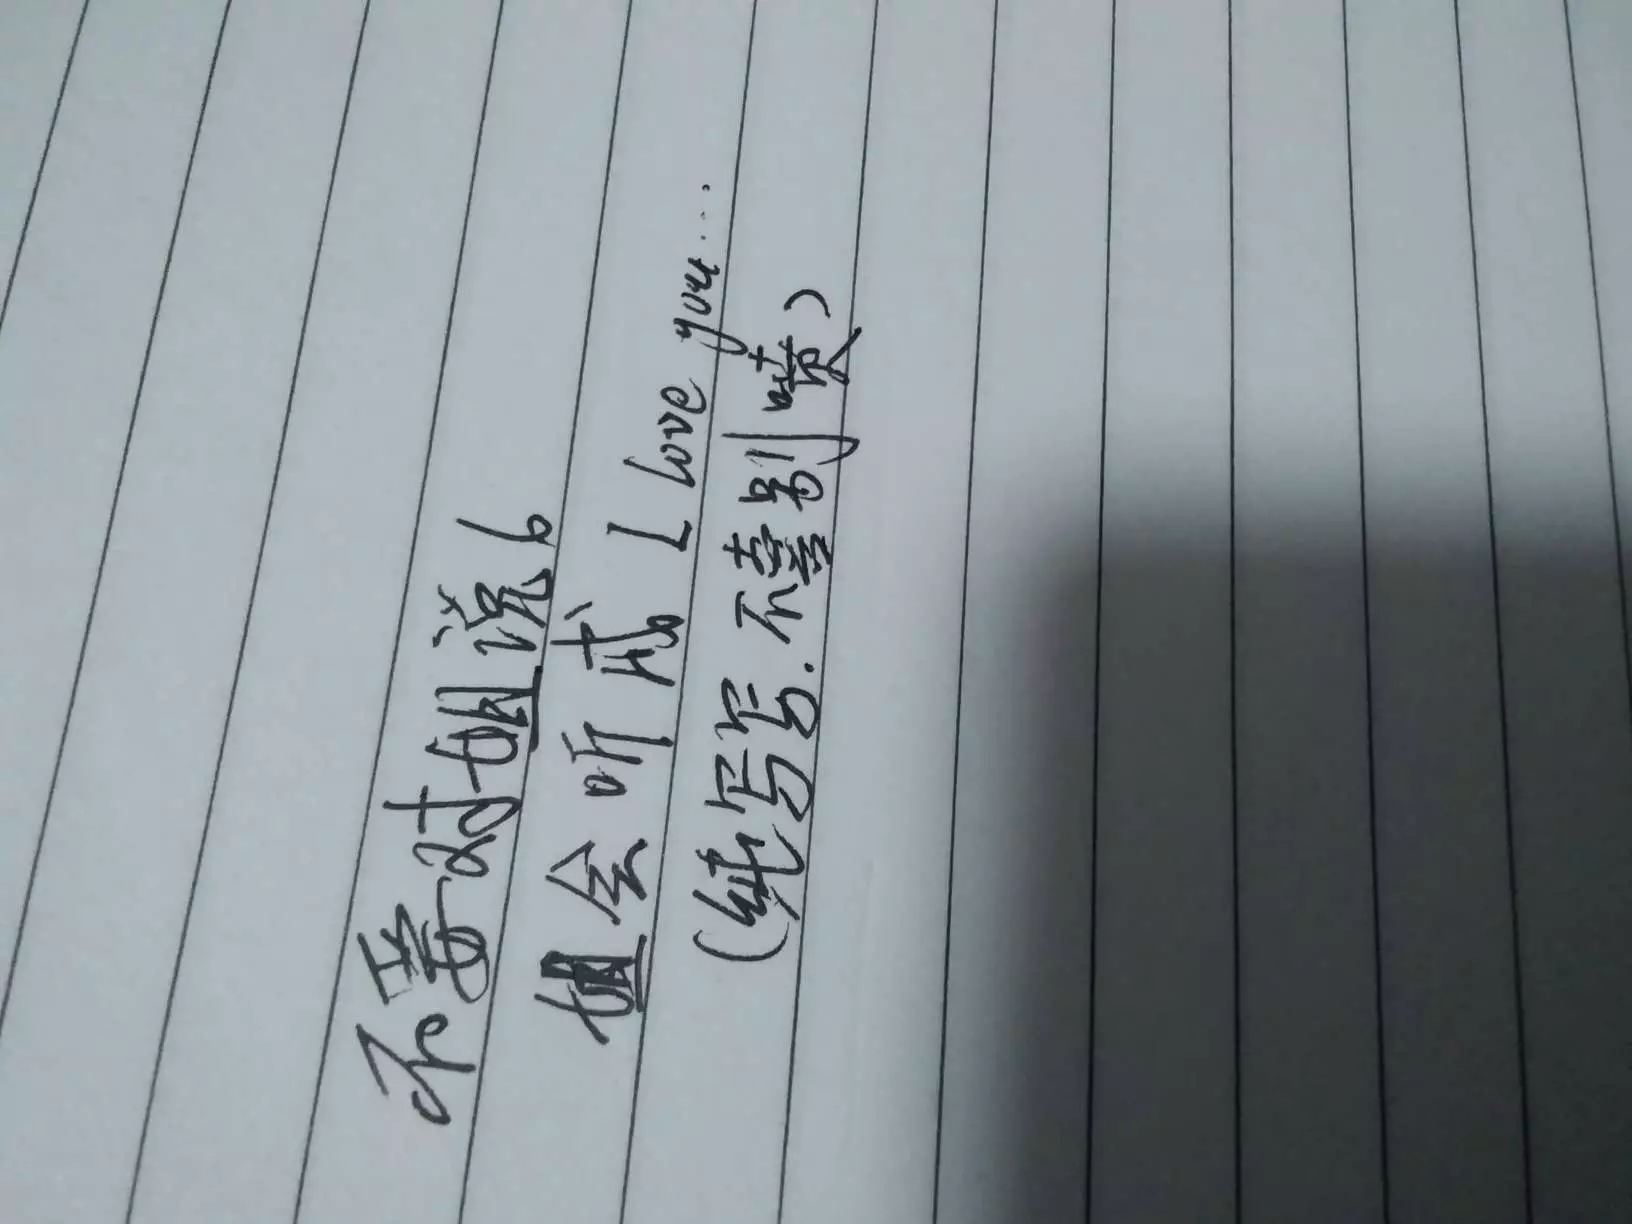 不要对说6
会听成 I Love you....
(纯写写.不喜别喷)